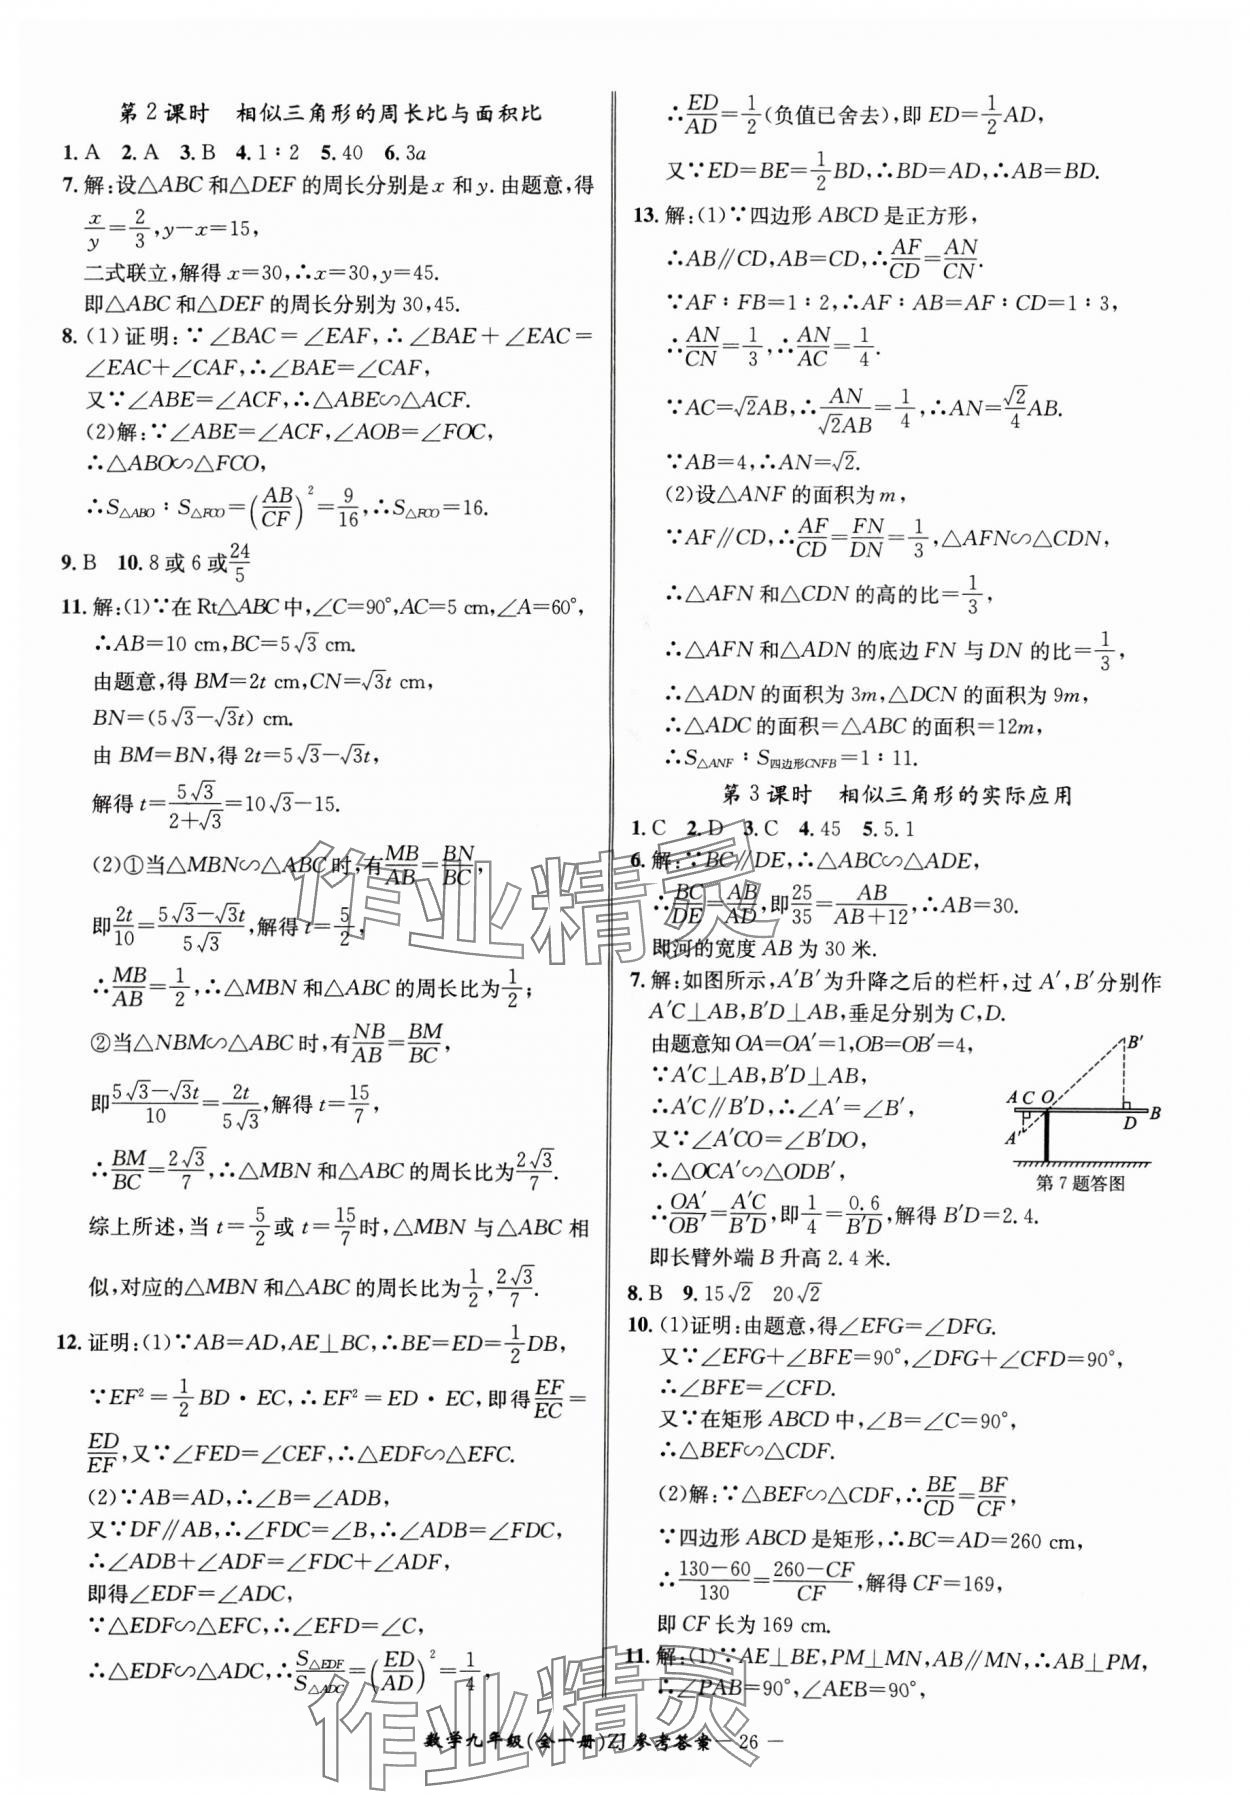 第2课时　相似三角形的周长比与面积比
1. A　2. A　3. B　4. 1∶2　5. 40　6. 3a
7. 解:设△ABC和△DEF的周长分别是x和y. 由题意,得
x/y=2/3,y−x=15,
二式联立,解得x=30,∴x=30,y=45.
即△ABC和△DEF的周长分别为30,45.
8. (1)证明:∵∠BAC=∠EAF,∴∠BAE+∠EAC=
∠EAC+∠CAF,∴∠BAE=∠CAF,
又∵∠ABE=∠ACF,∴△ABE∽△ACF.
(2)解:∵∠ABE=∠ACF,∠AOB=∠FOC,
∴△ABO∽△FCO,
∴S△ABO∶S△FCO=(AB/CF)²=9/16,∴S△FCO=16.
9. B　10. 8或6或24/5
11. 解:(1)∵在Rt△ABC中,∠C=90°,AC=5 cm,∠A=60°,
∴AB=10 cm,BC=5√3 cm.
由题意,得BM=2t cm,CN=√3t cm,
BN=(5√3−√3t) cm.
由BM=BN,得2t=5√3−√3t,
解得t=5√3/(2+√3)=10√3−15.
(2)①当△MBN∽△ABC时,有MB/AB=BN/BC,
即2t/10=(5√3−√3t)/5√3,解得t=5/2,
∴MB/AB=1/2,∴△MBN和△ABC的周长比为1/2;
②当△NBM∽△ABC时,有NB/AB=BM/BC,
即(5√3−√3t)/10=2t/5√3,解得t=15/7,
∴BM/BC=2√3/7,∴△MBN和△ABC的周长比为2√3/7.
综上所述,当t=5/2或t=15/7时,△MBN与△ABC相
似,对应的△MBN和△ABC的周长比为1/2,2√3/7.
12. 证明:(1)∵AB=AD,AE⊥BC,∴BE=ED=1/2DB,
∵EF²=1/2BD·EC,∴EF²=ED·EC,即得EF/EC=
ED/EF,又∵∠FED=∠CEF,∴△EDF∽△EFC.
(2)∵AB=AD,∴∠B=∠ADB,
又∵DF∥AB,∴∠FDC=∠B,∴∠ADB=∠FDC,
∴∠ADB+∠ADF=∠FDC+∠ADF,
即得∠EDF=∠ADC,
∵△EDF∽△EFC,∴∠EFD=∠C,
∴△EDF∽△ADC,∴S△EDF/S△ADC=(ED/AD)²=1/4,
∴ED/AD=1/2(负值已舍去),即ED=1/2AD,
又∵ED=BE=1/2BD,∴BD=AD,∴AB=BD.
13. 解:(1)∵四边形ABCD是正方形,
∴AB∥CD,AB=CD,∴AF/CD=AN/CN.
∵AF∶FB=1∶2,∴AF∶AB=AF∶CD=1∶3,
∴AN/CN=1/3,∴AN/AC=1/4.
∵AC=√2AB,∴AN/√2AB=1/4,∴AN=√2/4AB.
∵AB=4,∴AN=√2.
(2)设△ANF的面积为m,
∵AF∥CD,∴AF/CD=FN/DN=1/3,△AFN∽△CDN,
∴△AFN和△CDN的高的比=1/3,
∴△AFN和△ADN的底边FN与DN的比=1/3,
∴△ADN的面积为3m,△DCN的面积=9m,
∴△ADC的面积=△ABC的面积=12m,
∴S△ANF∶S四边形CNFB=1∶11.
第3课时　相似三角形的实际应用
1. C　2. D　3. C　4. 45　5. 5.1
6. 解:∵BC∥DE,∴△ABC∽△ADE,
∴BC/DE=AB/AD,即25/35=AB/(AB+12),∴AB=30.
即河的宽度AB为30米.
7. 解:如图所示,A′B′为升降之后的栏杆,过A′,B′分别作
A′C⊥AB,B′D⊥AB,垂足分别为C,D.
由题意知OA=OA′=1,OB=OB′=4,
∵A′C⊥AB,B′D⊥AB,
∴A′C∥B′D,∴∠A′=∠B′,
又∵∠A′CO=∠B′DO,
∴△OCA′∽△ODB′,
∴OA′/OB′=A′C/B′D,即1/4=0.6/B′D,解得B′D=2.4.
即长臂外端B升高2.4米.
B′
A C O
D B
A′
第7题答图
8. B　9. 15√2　20√2
10. (1)证明:由题意,得∠EFG=∠DFG.
又∵∠EFG+∠BFE=90°,∠DFG+∠CFD=90°,
∴∠BFE=∠CFD.
又∵在矩形ABCD中,∠B=∠C=90°,
∴△BEF∽△CDF.
(2)解:∵△BEF∽△CDF,∴BE/CD=BF/CF,
∵四边形ABCD是矩形,∴BC=AD=260 cm,
∴(130−60)/130=(260−CF)/CF,解得CF=169,
即CF长为169 cm.
11. 解:(1)∵AE⊥BE,PM⊥MN,AB∥MN,∴AB⊥PM,
∴∠PAB=90°,∠AEB=90°,
数学九年级(全一册)ZJ 参考答案 — 26 —
作业精灵
作业精灵